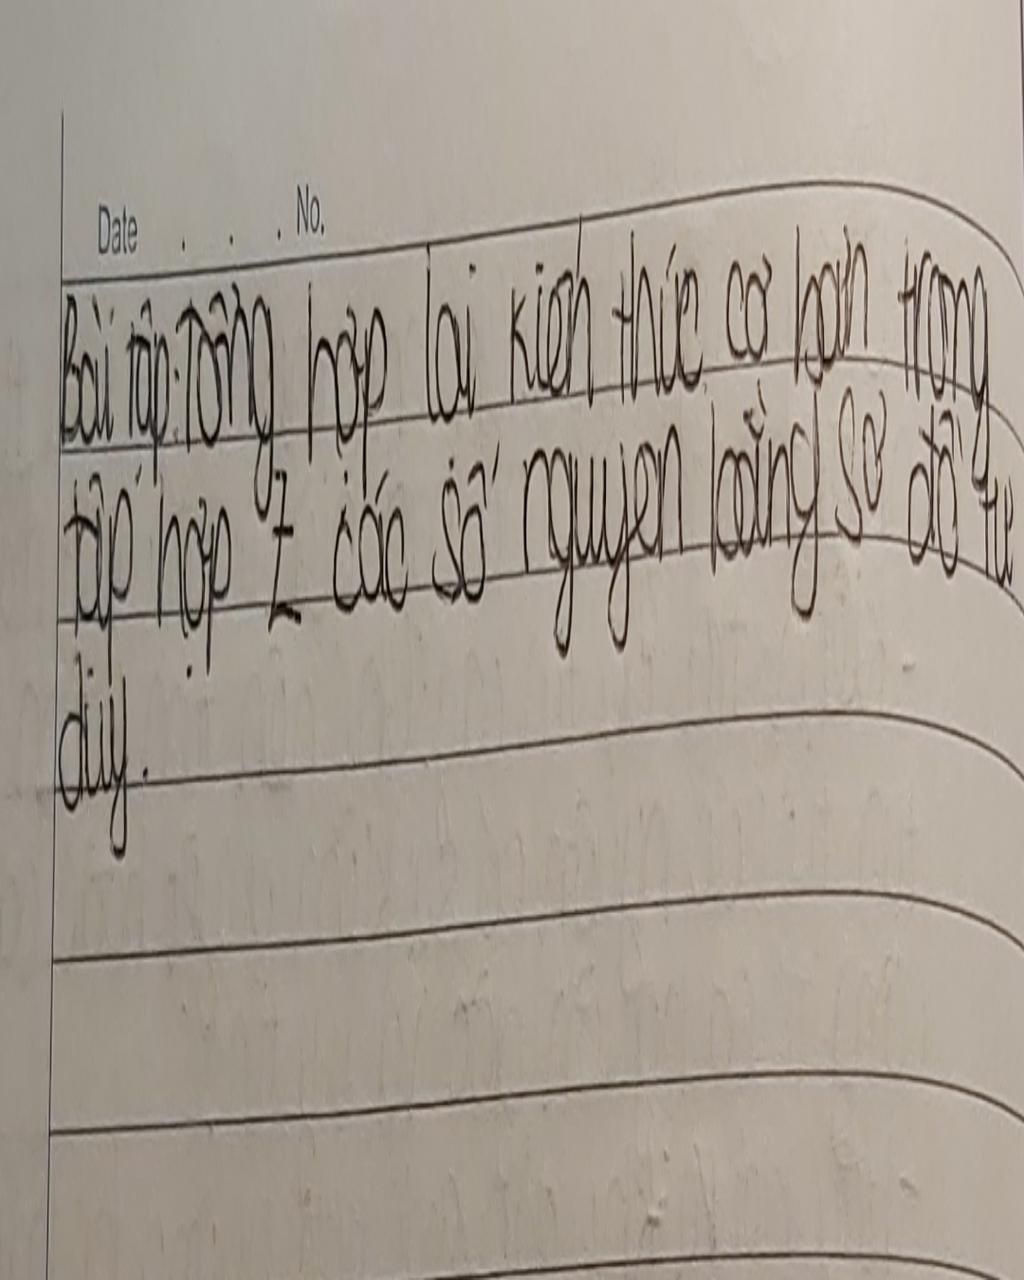 Date . . . No.
Bài tập: Tổng hợp lại kiến thức cơ bản trong
tập hợp Z các số nguyên bằng sơ đồ tư
duy.